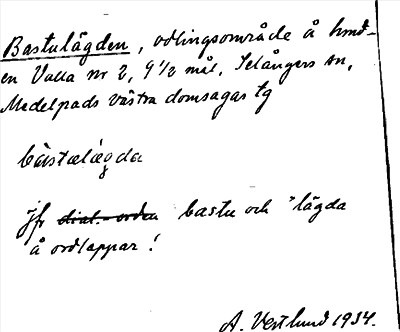 Bastulägden, odlingsområde å hmd-
en Valla nr 2, 9 1/2 mål, Selångers sn,
Medelpads västra domsagas tg
bàstulægda
Jfr dial.-orden bastu och *lägda
å ordlappar!
A. Vestlund 1934.